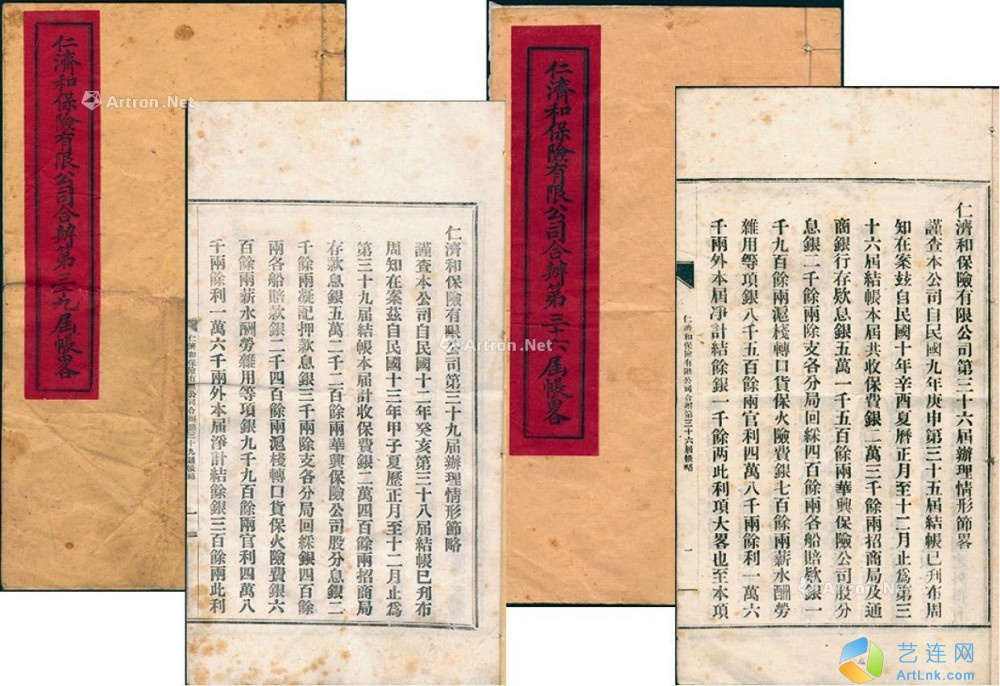 仁濟和保險有限公司合辦第三十九屆帳畧
Artron.Net
仁濟和保險有限公司第三十九屆辦理情形節略
謹查本公司自民國十二年癸亥第三十八屆結帳已刋布
周知在案茲自民國十三年甲子夏歷正月至十二月止為
第三十九屆結帳本屆計收保費銀二萬四百餘兩招商局
存款息銀五萬二千二百餘兩華興保險公司股分息銀二
千餘兩凝記押款息銀三千兩除支各分局回綵銀四百餘
兩各船賠款銀二千四百餘兩滬棧轉口貨保火險費銀六
百餘兩薪水酬勞雜用等項銀九千九百餘兩官利四萬八
千兩餘利一萬六千兩外本屆淨計結餘銀三百餘兩此利
仁濟和保險有限公司合辦第三十九屆帳略
一
仁濟和保險有限公司合辦第三十六屆帳畧
Artron.Net
仁濟和保險有限公司第三十六屆辦理情形節畧
謹查本公司自民國九年庚申第三十五屆結帳已刋布周
知在案玆自民國十年辛酉夏曆正月至十二月止爲第三
十六屆結帳本屆共收保費銀二萬三千餘兩招商局及通
商銀行存欵息銀五萬一千五百餘兩華興保險公司股分
息銀二千餘兩除支各分局回綵四百餘兩各船賠欵銀一
千九百餘兩滬棧轉口貨保火險費銀七百餘兩薪水酬勞
雜用等項銀八千五百餘兩官利四萬八千兩餘利一萬六
千兩外本屆净計結餘銀一千餘两此利項大畧也至本項
仁濟和保險有限公司合辦第三十六屆帳略
一
艺连网
ArtLnk.com